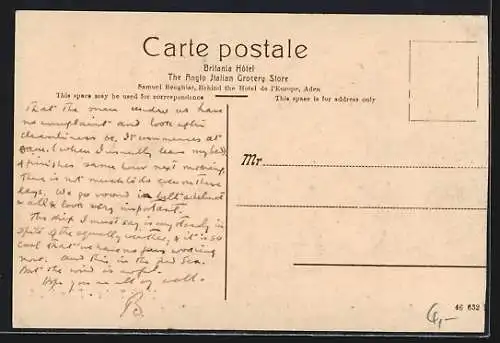 Carte postale
Britania Hôtel
The Anglo Italian Grocery Store
Samuel Benghiat, Behind the Hotel de l'Europe, Aden
This space may be used for correspondence
This space is for address only
That the men under us have
no complaint and look after
cleanliness &c. It commences at
9am. (when I usually leave my bed)
& finishes same hour next morning.
There is not much to do even these
days. We go round in belt & helmet
& all & look very important.
The ship I must say, is very steady in
spite of the squally weather, & it is so
cool that we have no fans working
now. And this in the Red Sea.
But the wind is awful.
Hope you are all of well.
B.
Mr
46 632
6,-